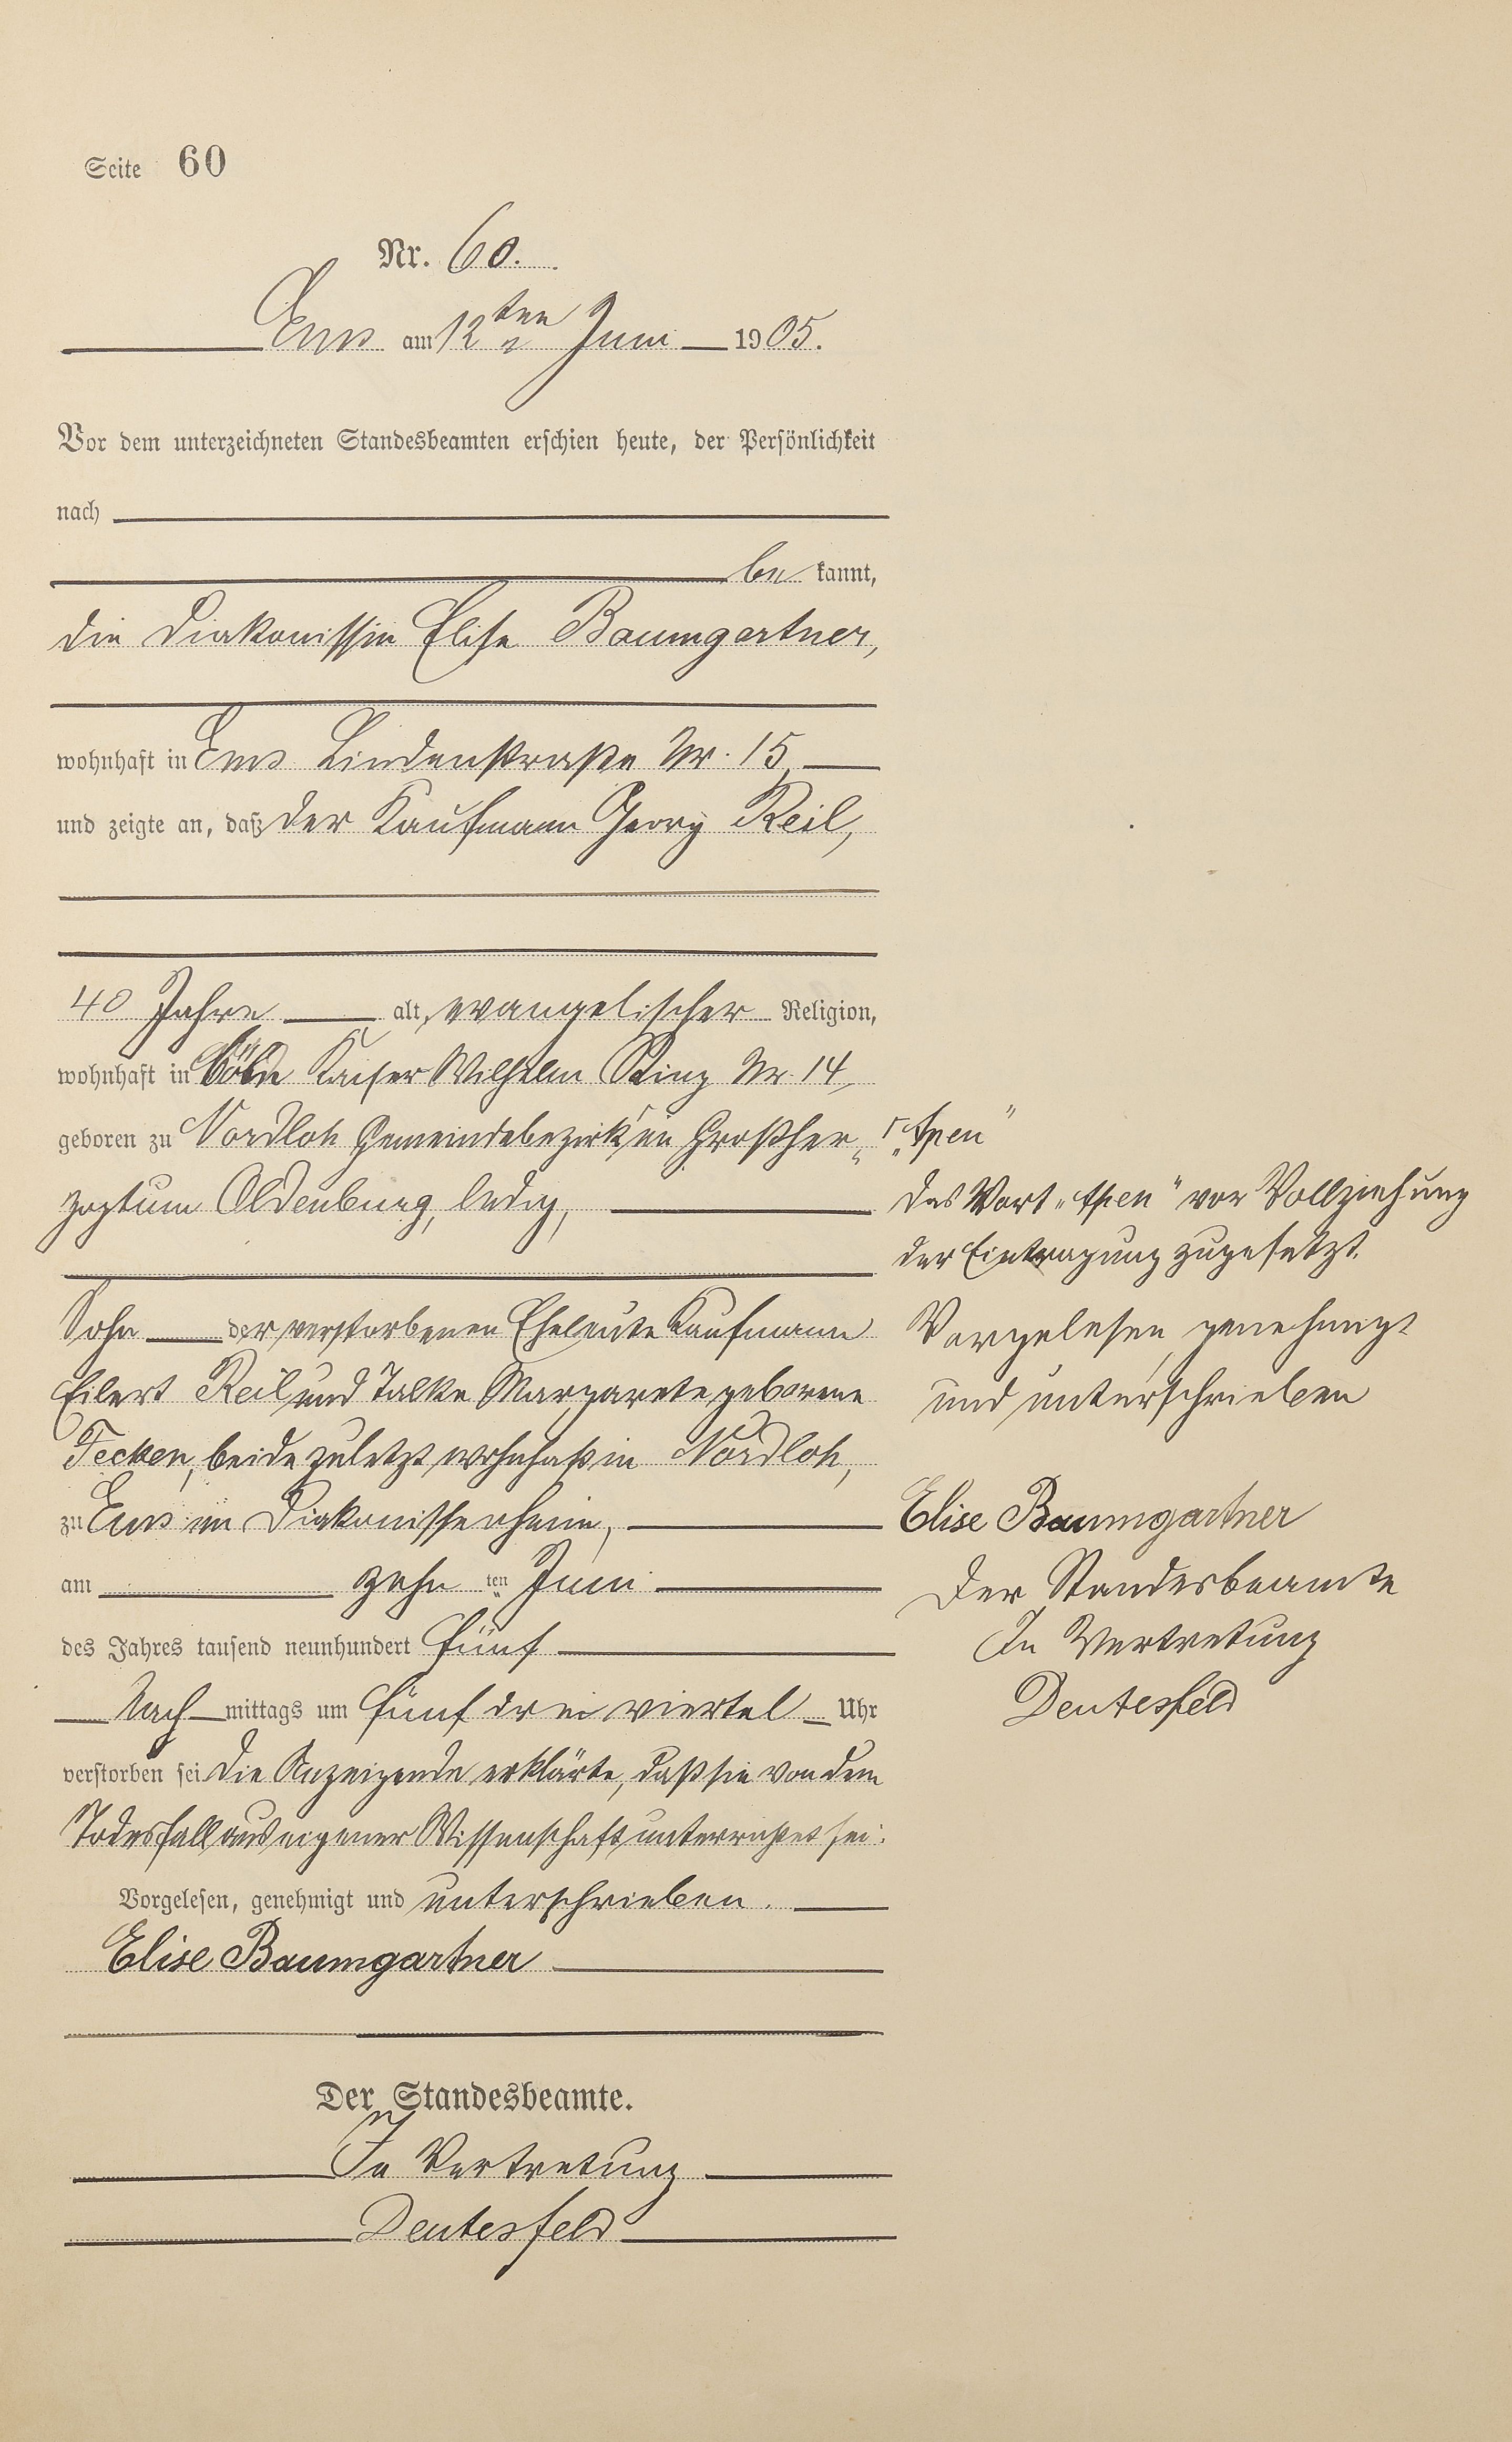 Seite 60
Nr. 60.
Ems am 12ten Juni 1905.
Vor dem unterzeichneten Standesbeamten erschien heute, der Persönlichkeit
nach
be kannt,
die Diakonissin Elise Baumgartner,
wohnhaft in Ems Lindenstraße Nr. 15,
und zeigte an, daß der Kaufmann Georg Reil,
40 Jahre alt, evangelischer Religion,
wohnhaft in Köln Kaiser Wilhelm Ring Nr. 14,
geboren zu Nordloh Gemeindebezirk ⌈ in Großher-
zogtum Oldenburg, ledig,
Sohn der verstorbenen Eheleute Kaufmann
Eilert Reil und Talke Margarete geborene
Tecken, beide zuletzt wohnhaft in Nordloh,
zu Ems im Diakonissenheim,
am zehn ten Juni
des Jahres tausend neunhundert fünf
Nach mittags um fünf drei viertel Uhr
verstorben sei. Die Anzeigende erklärte, daß sie von dem
Todesfall aus eigener Wissenschaft unterrichtet sei.
Vorgelesen, genehmigt und unterschrieben.
Elise Baumgartner
Der Standesbeamte.
In Vertretung
Deutesfeld
⌈ „Apen"
Das Wort „Apen" vor Vollziehung
der Eintragung zugesetzt.
Vorgelesen, genehmigt
und unterschrieben
Elise Baumgartner
Der Standesbeamte
In Vertretung
Deutesfeld